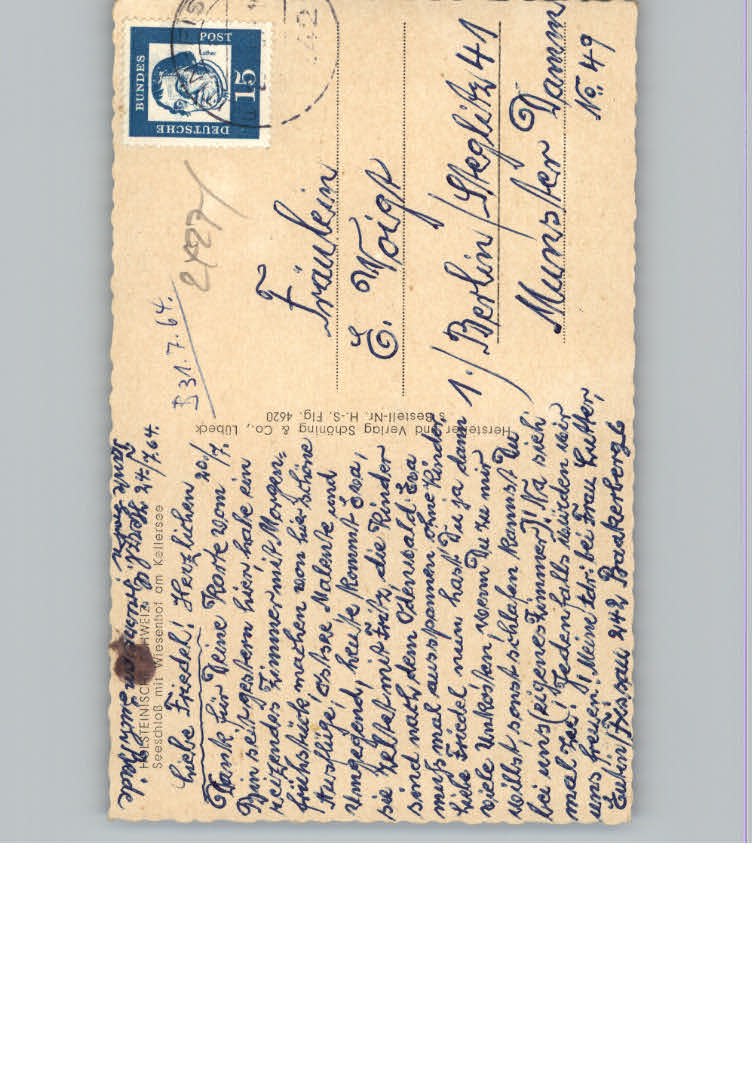 HOLSTEINISCHE SCHWEIZ
Seeschloß mit Wiesenhof am Kellersee
24/7.64.
Liebe Friedel! Herzlichen
Dank für Deine Karte vom 20./7.
Bin seit gestern hier, habe ein
reizendes Zimmer mit Morgen-
frühstück, machen von hier schöne
Ausflüge, Ostsee, Malente und
Umgegend, heute kommt Eva,
sie zeltet mit Fritz, die Kinder
sind nach dem Odenwald. Eva
muß mal ausspannen ohne Kinder,
liebe Friedel nun hast Du ja dann
viele Unkosten, wenn Du zu mir
willst, sonst schlafen kannst Du
bei uns (eigenes Zimmer)! Na sieh
mal zu! Jedenfalls würden wir
uns freuen. Meine Adr. bei Frau Lutter,
Eutin/Fissau 242
Hersteller und Verlag Schöning & Co., Lübeck
Bestell-Nr. H.-S. Flg. 4620
DEUTSCHE
BUNDES
POST
15
Luther
31.7.64.
Fräulein
E. Voigt
1./Berlin/Steglitz 41
Munster Damm
No. 49